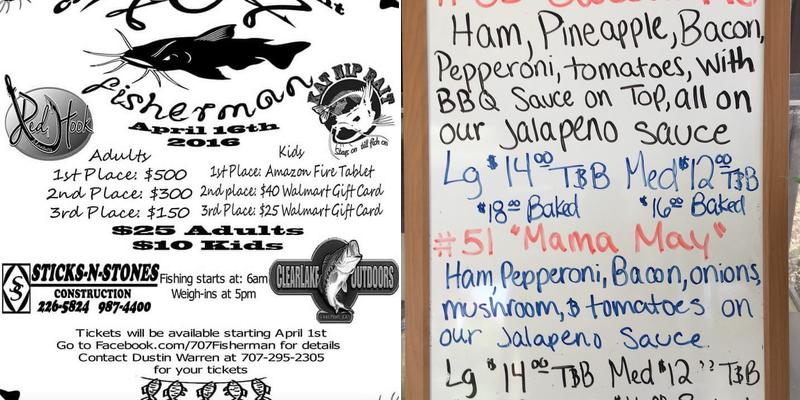 fisherman
April 16th
2016
Red Hook
KAT NIP BAIT
Stays on till fish on
Adults
1st Place: $500
2nd Place: $300
3rd Place: $150
Kids
1st Place: Amazon Fire Tablet
2nd place: $40 Walmart Gift Card
3rd Place: $25 Walmart Gift Card
$25 Adults
$10 Kids
STICKS-N-STONES
CONSTRUCTION
226-5824 987-4400
Fishing starts at: 6am
Weigh-ins at 5pm
CLEARLAKE OUTDOORS
Tickets will be available starting April 1st
Go to Facebook.com/707Fisherman for details
Contact Dustin Warren at 707-295-2305
for your tickets
Ham, Pineapple, Bacon,
Pepperoni, tomatoes, with
BBQ Sauce on Top, all on
our Jalapeno sauce
Lg $14.00 T&B Med $12.00 T&B
$18.00 Baked $16.00 Baked
#51 "Mama May"
Ham, Pepperoni, Bacon, onions,
mushroom, & tomatoes on
our Jalapeno Sauce.
Lg $14.00 T&B Med $12 " T&B